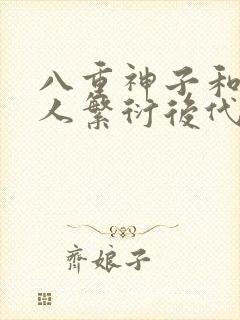 八重神子和
人繁衍後代
齊娘子